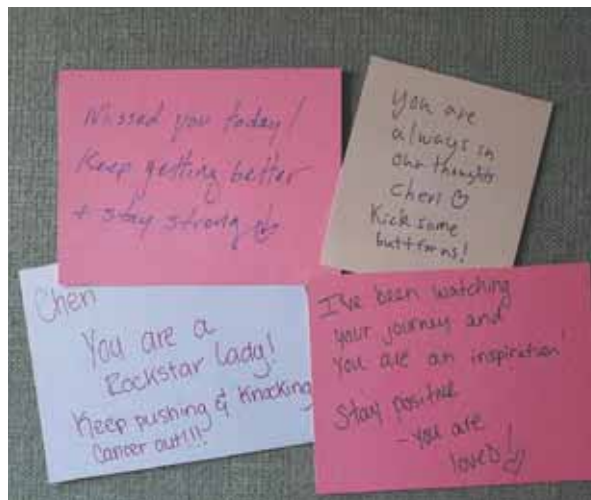 Missed you today!
Keep getting better
+ stay strong
You are
always in
our thoughts
Cheri
Kick some
butt for us!
Cheri
You are a
Rockstar lady!
Keep pushing & Knocking
Cancer out!!!
I've been watching
your journey and
you are an inspiration!
Stay positive
- you are
loved!